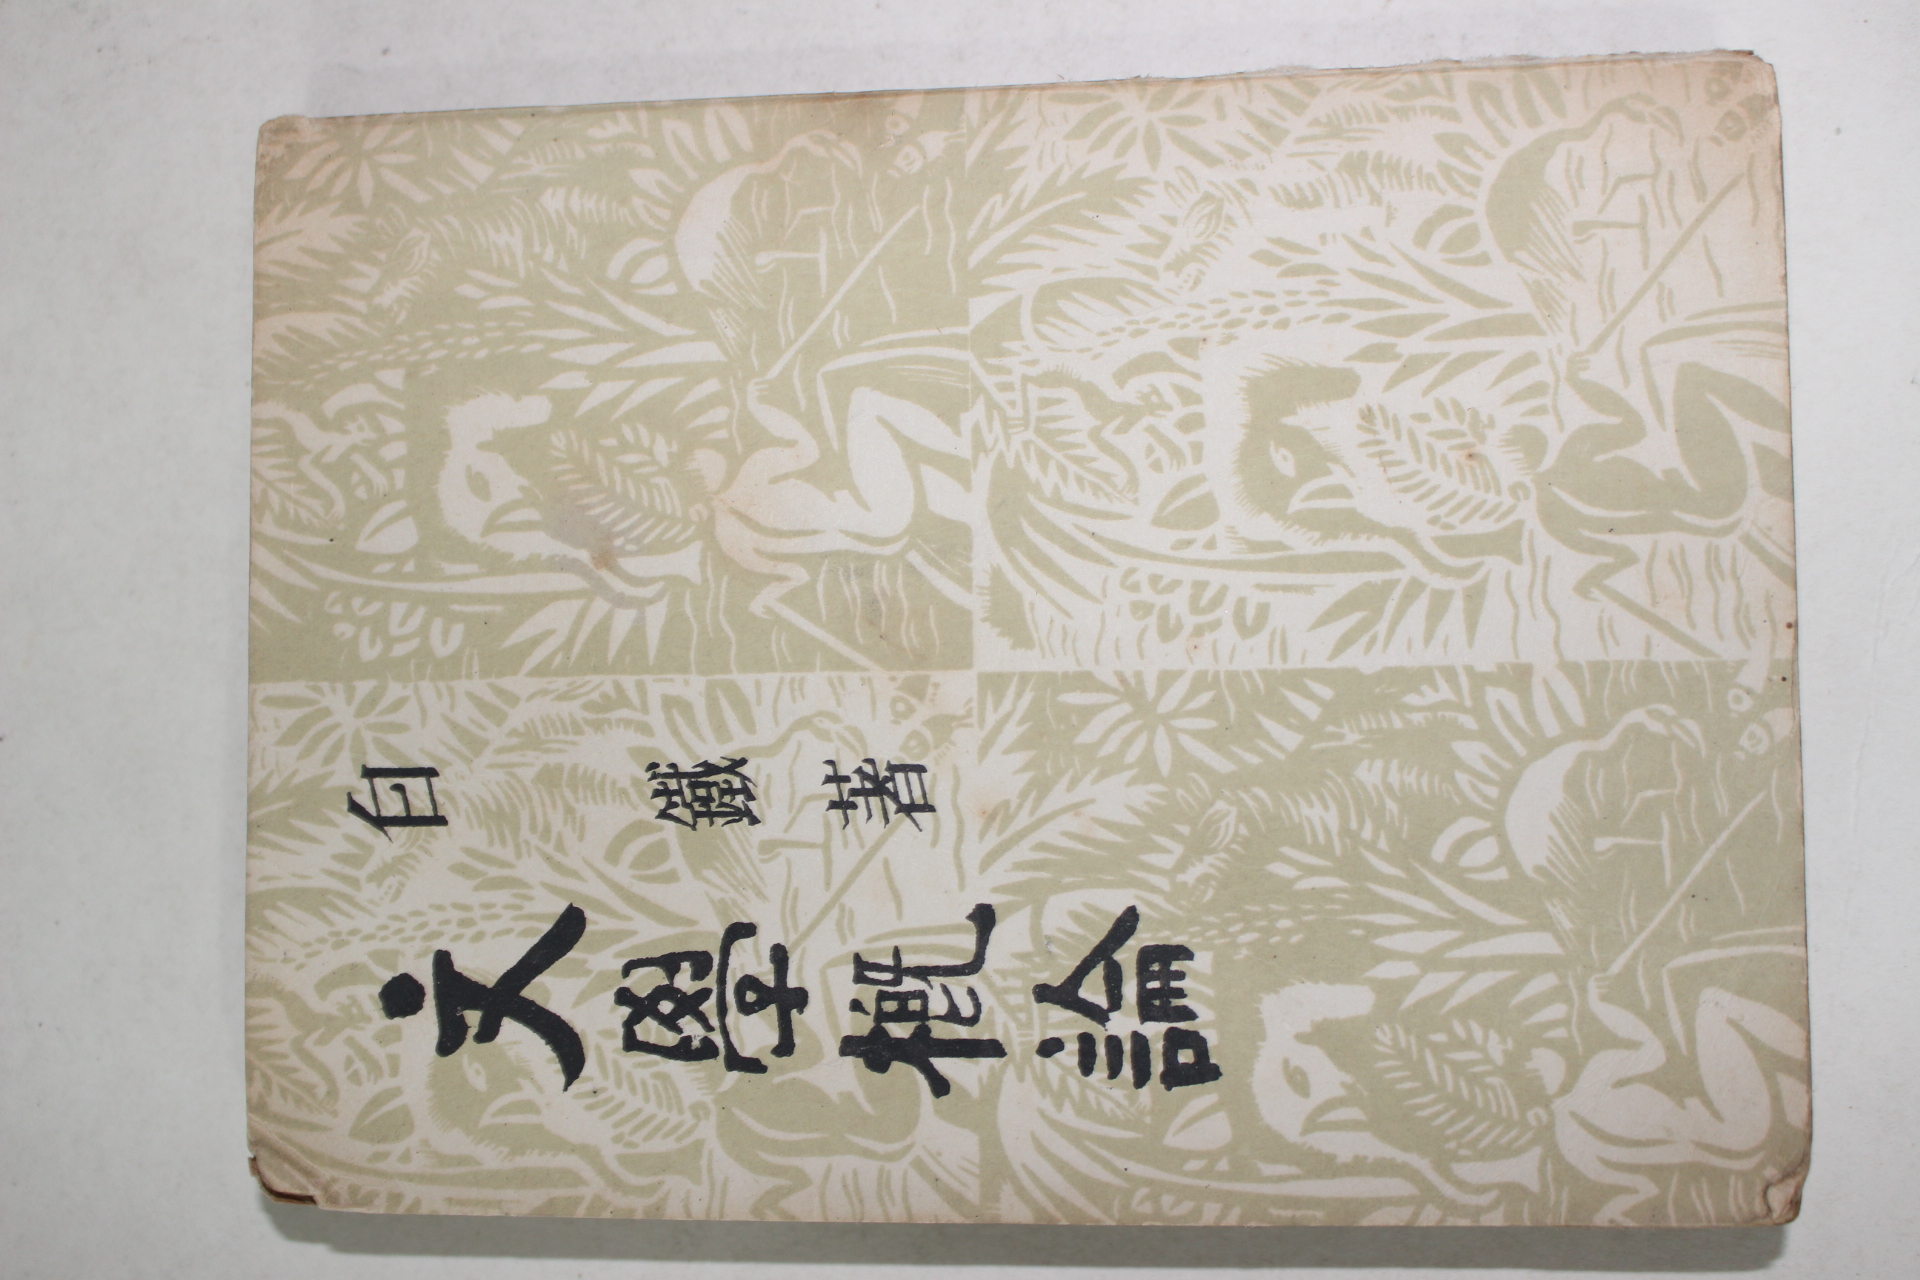 文學概論
白鐵著